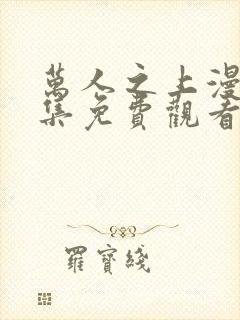 萬人之上漫
集免費觀看
羅寶綫